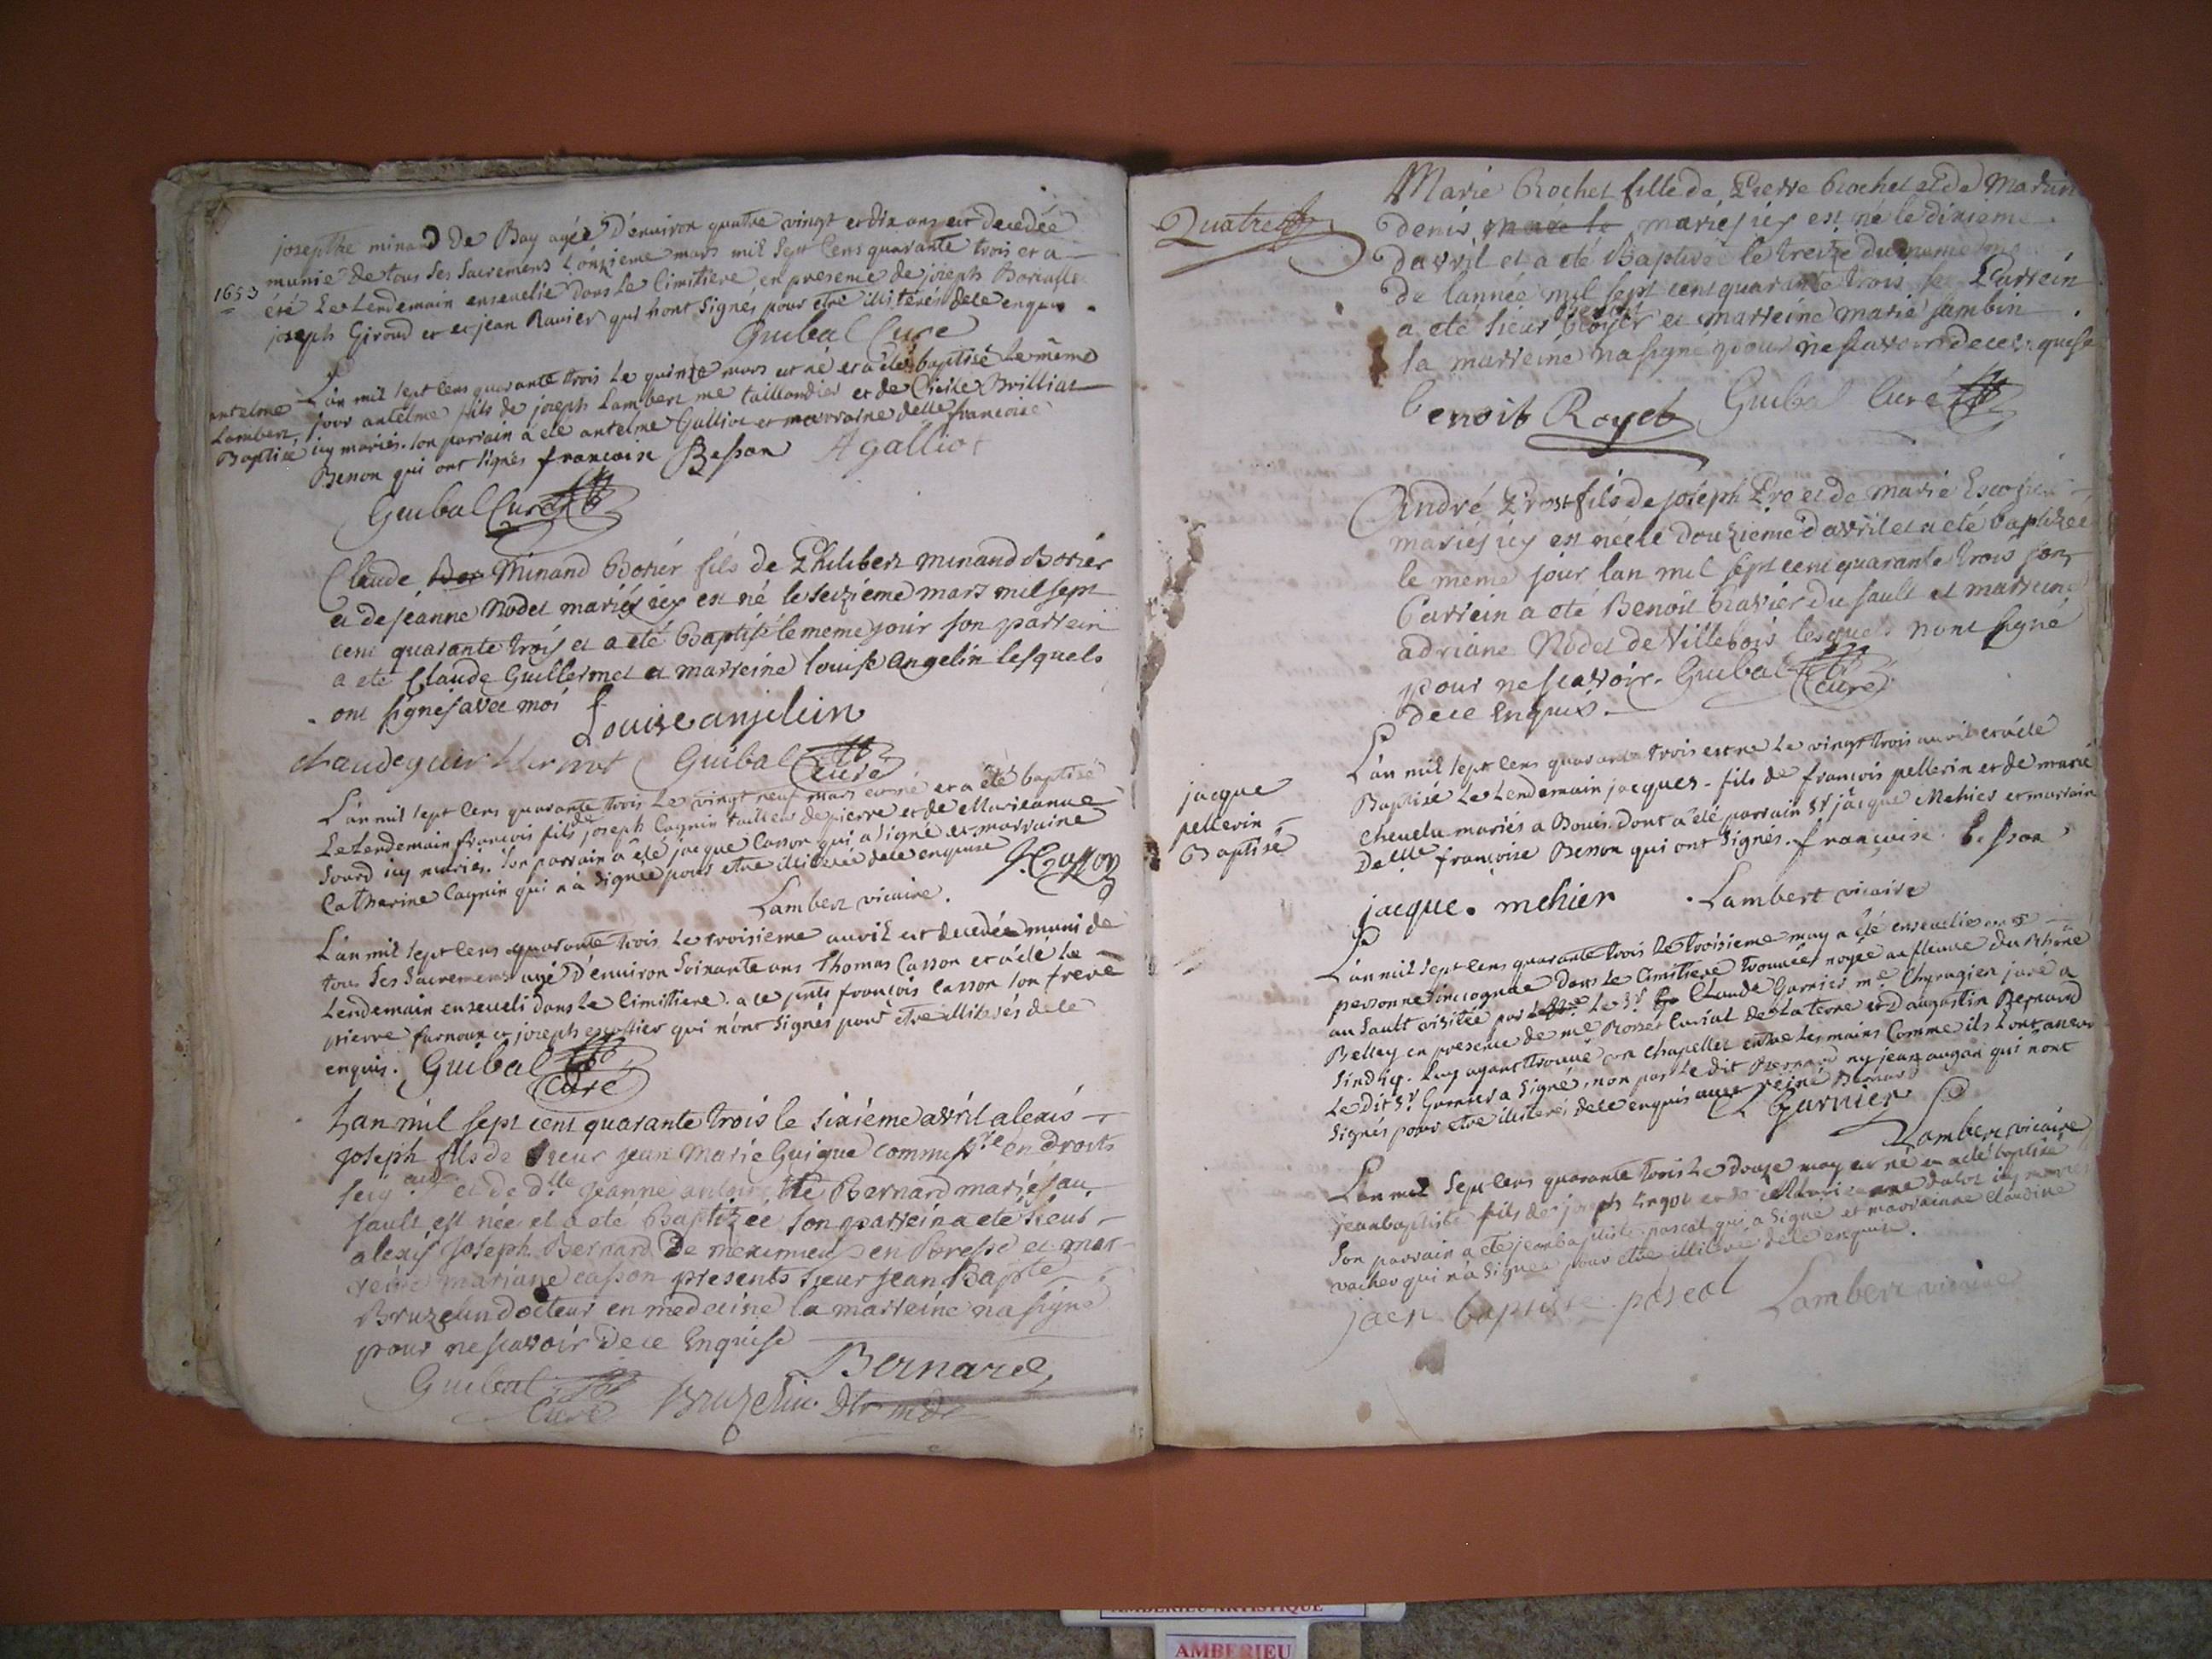 josepthe minand de Bay agée d'environ quatre vingt et dix ans est decedée
munie de tous ses sacremens l'onzieme mars mil sept cens quarante trois et a
1653
été le lendemain ensevelie dans le cimitiere, en presence de joseph
joseph Giroud et et jean Ravier qui nont signés pour etre illiterés de ce enquis.
Guibal Curé
L'an mil sept cens quarante trois le quinze mars est né et a été baptisé le même
antelme
Lambert
Baptisé
jour antelme fils de joseph Lambert me taillandier et de Cécile Brilliat
icy mariés. son parrain a été antelme Galliot et marraine delle francoise
Besson qui ont signés francoise Besson AGalliot
Guibal Curé
Claude Minand Borier fils de Philibert minand Borier
et de jeanne Nodet mariés icy est né le seizième mars mil sept
cent quarante trois et a eté Baptisé le meme jour son parrein
a eté Claude Guillermet et marreine louise Angelin lesquels
ont signés avec moi Louise anjelin
claude guillermet Guibal Curé
L'an mil sept cens quarante trois le vingt neuf mars est né et a été baptisé
le lendemain francois fils de joseph Cagnin tailleur de pierre et de Marieanne
Sourd icy mariés. son parrain a été jacque Casson qui a signé et marraine
Catherine Cagnin qui n'a signée pour etre illiterée de ce enquise J Casson
Lambert vicaire.
L'an mil sept cens quarante trois le troisieme avvil est decedée muni de
tous ses sacremens agé d'environ soixante ans Thomas Casson et a été le
lendemain enseveli dans le cimitiere. a ce pnts francois Casson son frere
pierre furnoux et joseph escoffier qui n'ont signés pour etre illiterés de ce
enquis. Guibal Curé
Lan mil sept cent quarante trois le sixiéme avril alexis
Joseph fils de Sieur jean Marie Guigue commissre en droits
seig.aux et de dlle Jeanne antoinette Bernard mariés au
sault est née et a eté Baptizée son parrein a eté sieur
alexis Joseph Bernard de meximieu en Bresse et mar
reine mariane casson presents sieur jean Bapte
Bruzelin docteur en medecine la marreine na signé
pour ne scavoir de ce enquise
Guibal Curé Bernard
Bruzelin
Marie Rochet fille de Pierre Rochet et de
Quatre
denis mariés icy est né le dixieme
davril et a eté Baptisée le treize du meme
de lannée mil sept cent quarante trois Parrein
a eté sieur benoit Royer et marreine marie jambin
la marreine na signé pour ne scavoir de ce enquise
benoit Royet Guibal Curé
André Prost fils de joseph Pro et de marie
mariés icy est née le douzieme davril et a eté baptizée
le méme jour lan mil sept cent quarante trois son
Parrein a eté Benoit Ravier du sault et marreine
adriane Nodet de Villebois lesquels nont signé
pour ne scavoir. Guibal Curé
de ce Enquis
L'an mil sept cens quarante trois est né le vingt trois avvil et a été
jacque
pellerin
Baptisé
Baptisé le lendemain jacques fils de francois pellerin et de marie
chevelu mariés a Bouis. dont a été parrain Sr jacque Mehier et marraine
Delle françoise Besson qui ont signés. françoise besson
jacque. mehier Lambert vicaire
L'an mil sept cens quarante trois le troisieme may a été ensevelie
personne incognue dans le cimitiere trouvée noyée au fleuve du Rhône
au Sault visitée par le Sr Claude Garnier me Chyrurgien juré a
Belley en presence de me Rosset Curial de la terre et d'augustin Bernard
sindiq. luy ayant trouvé un chapellet entre les mains comme ils l'ont
Le dit Sr Garnier a signé, non pas le dit Bernard ny jean augan qui nont
signés pour etre illiterés de ce enquis
Garnier
Lambert vicaire
L'an mil sept cens quarante trois le douze may est né et a été baptisé
jean baptiste fils de joseph et de icy mariés
son parrain a été jean baptiste pascal qui a signé et marrainne Claudine
vacher qui n'a signée pour etre illiteré de ce enquise.
jaen baptiste pascal Lambert vicaire
AMBERIEU ARTISTIQUE
AMBERIEU